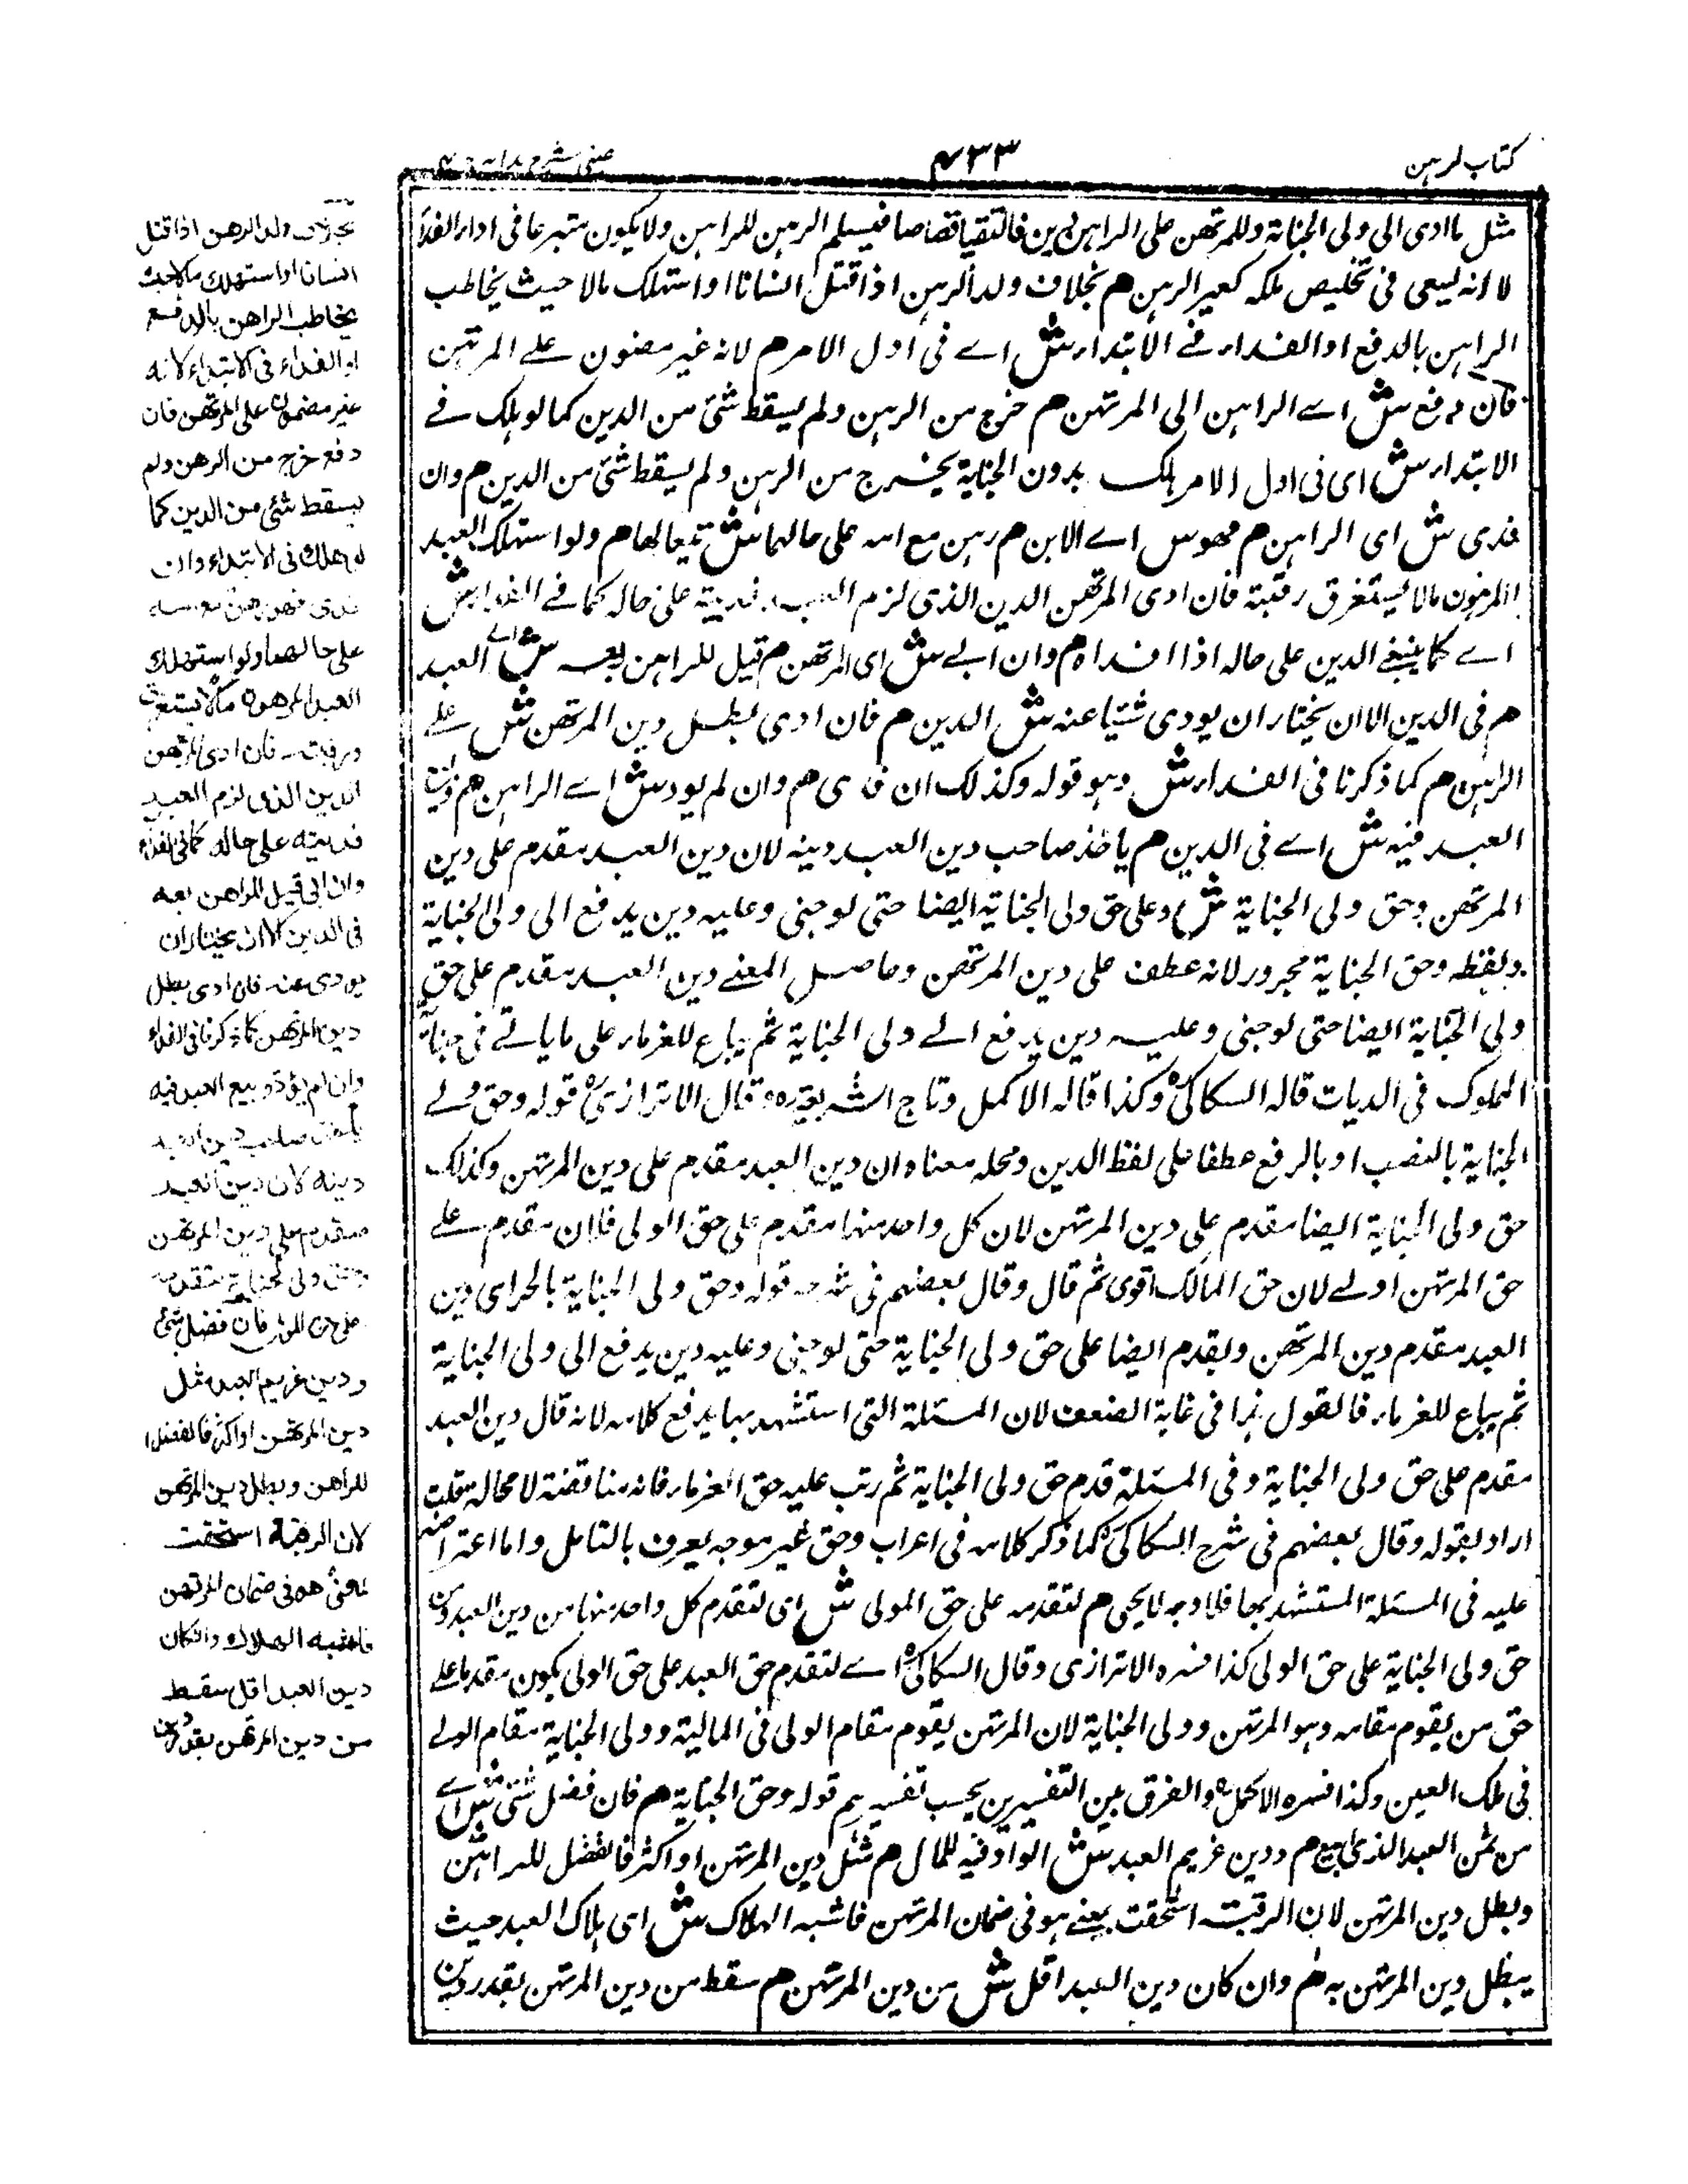 كتاب الرهن
٤٣٣
عيني شرح هداية
مثل ما ادى الى ولى الجناية وللمرتهن على الراهن دين فالتقيا قصاصا فيسلم الرهن للراهن ولا يكون متبرعا فى اداء الفداء
لانه يسعى فى تخليص ملكه كمعير الرهن م بخلاف ولد الرهن اذا قتل انسانا او استهلك مالا حيث يخاطب
الراهن بالدفع او الفداء فے الابتداء ش اے فى اول الامر م لانه غير مضمون علے المرتهن
فان دفع ش اے الراهن الى المرتهن م خرج من الرهن ولم يسقط شئ من الدين كما لو هلك فے
الابتداء ش اى فى اول الامر هلك بدون الجناية يخرج من الرهن ولم يسقط شئ من الدين م وان
فدى ش اى الراهن م فهو ش اے الابن م رهن مع امه على حالهما ش تبعا لها م ولو استهلك العبد
المرهون مالا يستغرق رقبته فان ادى المرتهن الدين الذى لزم العبد فدينه على حاله كما فے الفداء ش
اے كما ينبغے الدين على حاله اذا افداه م وان ابے ش اى المرتهن م قيل للراهن بعه ش اے العبد
م فى الدين الا ان يختار ان يودى شئيا عنه ش الدين م فان ادى بطل دين المرتهن ش علے
الراهن م كما ذكرنا فى الفداء ش وهو قوله وكذلك ان فدى م وان لم يود ش اے الراهن م وبيع
العبد فيه ش اے فى الدين م ياخذ صاحب دين العبد دينه لان دين العبد مقدم على دين
المرتهن وحق ولى الجناية ش وعلى حق ولى الجناية ايضا حتى لو جنى وعليه دين يدفع الى ولى الجناية
ولفظه وحق الجناية مجرور لانه عطف على دين المرتهن وحاصل المعنے دين العبد مقدم على حق
ولى الجناية ايضا حتى لو جنى وعليه دين يدفع الے ولى الجناية ثم يباع للغرماء على ما ياتے فى جناية
المملوك فى الديات قاله السكاكى وكذا قاله الاكمل وتاج الشريعة وقال الاترازى قوله وحق ولے
الجناية بالنصب او بالرفع عطفا على لفظ الدين ومحله معناه ان دين العبد مقدم على دين المرتهن وكذلك
حق ولى الجناية ايضا مقدم على دين المرتهن لان كل واحد منها مقدم على حق الولى فلان مقدم علے
حق المرتهن اولے لان حق المالك اقوى ثم قال وقال بعضهم فى شرحه قوله وحق ولى الجناية بالجر اى دين
العبد مقدم دين المرتهن ويقدم ايضا على حق ولى الجناية حتى لو جنى وعليه دين يدفع الى ولى الجناية
ثم يباع للغرماء فالقول هذا فى غاية الضعف لان المسئلة التى استشهد بها يدفع كلامه لانه قال دين العبد
مقدم على حق ولى الجناية وفى المسئلة قدم حق ولى الجناية ثم رتب عليه حق الغرماء فانه مناقضة لا محالة قلت
اراد بقوله وقال بعضهم فى شرح السكاكى كما ذكر كلامه فى اعراب وحق غير موجه يعرف بالتامل واما اعتراضه
عليه فى المسئلة المستشهد بها فلا وجه لا يخى م لتقدمه على حق المولى ش اى لتقدم كل واحد منها من دين العبد ومن
حق ولى الجناية على حق الولى كذا فسره الاترازى وقال السكاكى اے لتقدم حق العبد على حق الولى يكون مقدما علے
حق من يقوم مقامه وهو المرتهن وولى الجناية لان المرتهن يقوم مقام الولى فى المالية وولى الجناية مقام الولے
فى ملك العين وكذا فسره الاكمل والفرق بين التفسيرين بحسب تفسيرهم قوله وحق الجناية م فان فضل شئ ش اے
من ثمن العبد الذى بيع م ودين غريم العبد ش الواو فيه للحال م مثل دين المرتهن او اكثر فالفضل للراهن
وبطل دين المرتهن لان الرقبة استحقت بمعنے هو فى ضمان المرتهن فاشبه الهلاك ش اى هلاك العبد حيث
يبطل دين المرتهن به م وان كان دين العبد اقل ش من دين المرتهن م سقط من دين المرتهن بقدر دين
بخلاف ولد الرهن اذا قتل
انسانا او استهلك مالا حيث
يخاطب الراهن بالدفع
او الفداء فى الابتداء لانه
غير مضمون على المرتهن فان
دفع خرج من الرهن ولم
يسقط شئ من الدين كما
لو هلك فى الابتداء وان
فدى فهو رهن مع امه
على حالهما ولو استهلك
العبد المرهون مالا يستغرق
رقبته فان ادى المرتهن
الدين الذى لزم العبد
فدينه على حاله كما فى الفداء
وان ابى قيل للراهن بعه
فى الدين الا ان يختار ان
يودى عنه فان ادى بطل
دين المرتهن كما ذكرنا فى الفداء
وان لم يؤد وبيع العبد فيه
ياخذ صاحب دين العبد
دينه لان دين العبد
مقدم على دين المرتهن
وحق ولى الجناية لتقدمه
على حق المولى فان فضل شئ
ودين غريم العبد مثل
دين المرتهن او اكثر فالفضل
للراهن وبطل دين المرتهن
لان الرقبة استحقت
لمعنى هو فى ضمان المرتهن
فاشبه الهلاك وان كان
دين العبد اقل سقط
من دين المرتهن بقدر دين